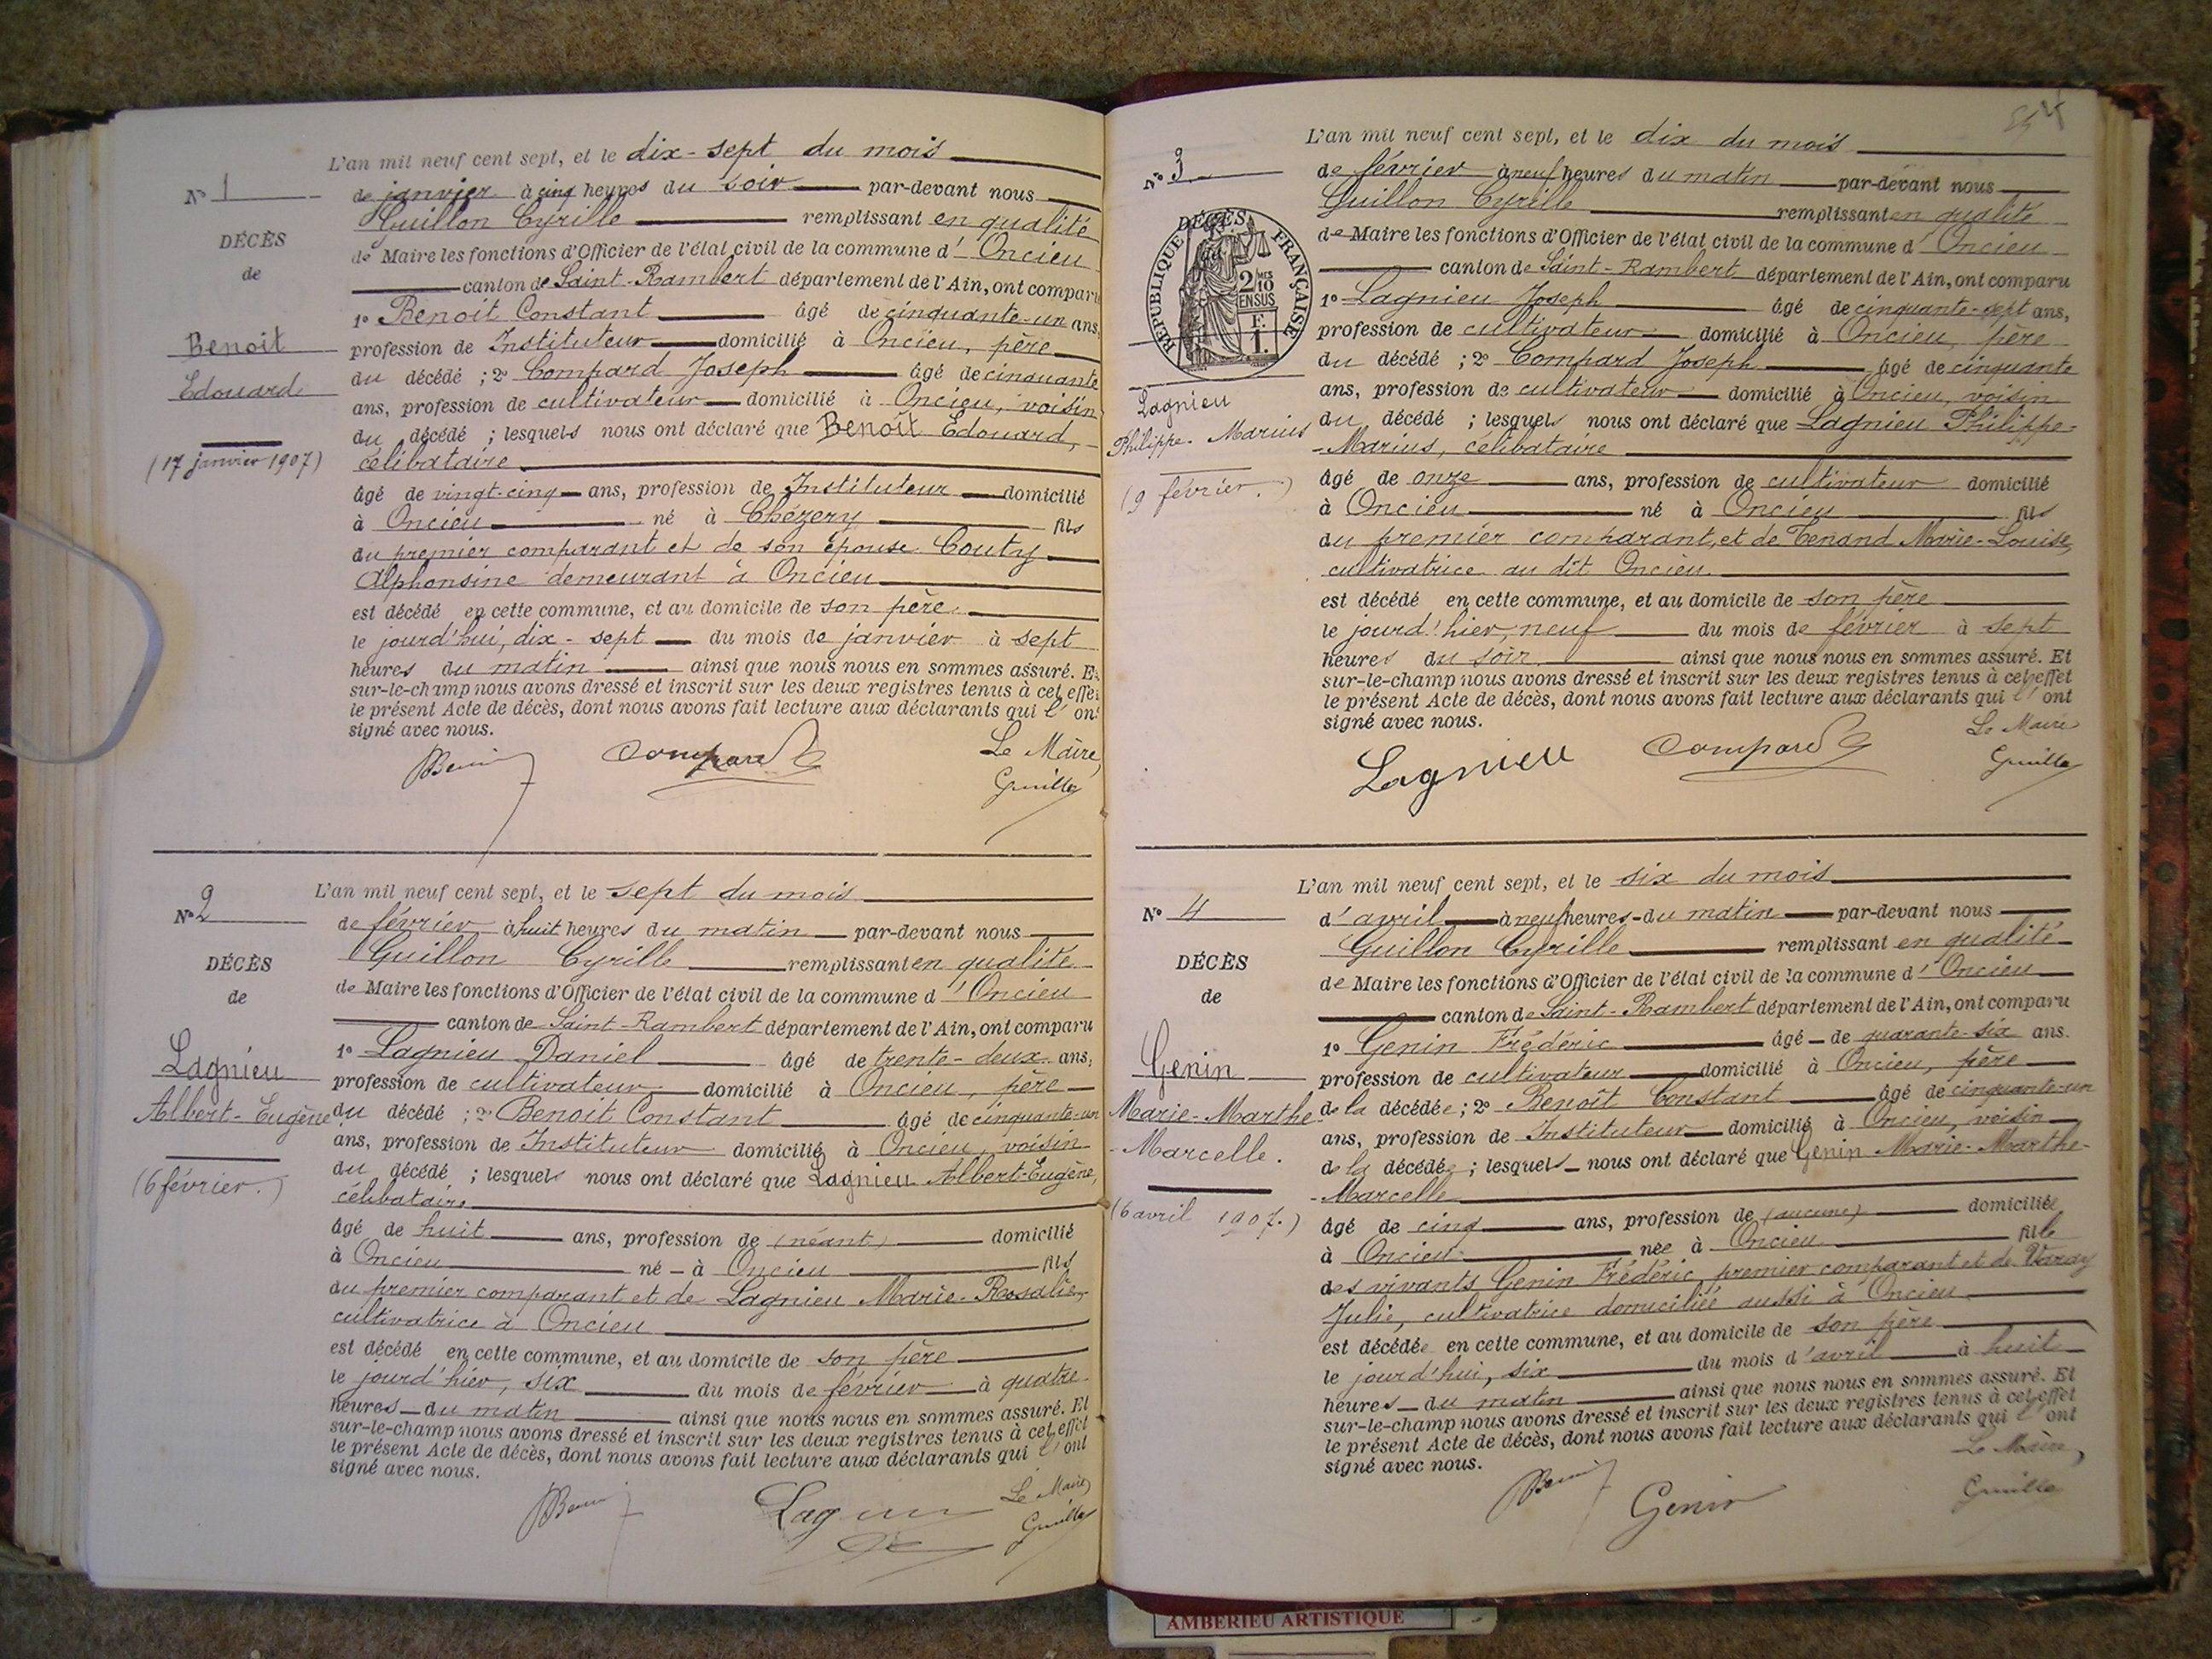 L'an mil neuf cent sept, et le dix-sept du mois
N° 1
de janvier à cinq heures du soir par-devant nous
Guillon Cyrille remplissant en qualité
DÉCÈS
de Maire les fonctions d'Officier de l'état civil de la commune d'Oncieu
de
canton de Saint-Rambert département de l'Ain, ont comparu
1° Benoit Constant âgé de cinquante-un ans,
Benoit
profession de Instituteur domicilié à Oncieu, père
Edouard
du décédé ; 2° Compard Joseph âgé de cinquante
ans, profession de cultivateur domicilié à Oncieu, voisin
du décédé ; lesquels nous ont déclaré que Benoît Edouard,
(17 janvier 1907)
célibataire
âgé de vingt-cinq ans, profession de Instituteur domicilié
à Oncieu né à Chézery fils
du premier comparant et de son épouse Couty
Alphonsine demeurant à Oncieu
est décédé en cette commune, et au domicile de son père
le jourd'hui, dix-sept du mois de janvier à sept
heures du matin ainsi que nous nous en sommes assuré. Et
sur-le-champ nous avons dressé et inscrit sur les deux registres tenus à cet effet
le présent Acte de décès, dont nous avons fait lecture aux déclarants qui l'ont
signé avec nous.
Compard
Le Maire,
Guillon
L'an mil neuf cent sept, et le sept du mois
N° 2
de février à huit heures du matin par-devant nous
Guillon Cyrille remplissant en qualité
DÉCÈS
de Maire les fonctions d'Officier de l'état civil de la commune d'Oncieu
de
canton de Saint-Rambert département de l'Ain, ont comparu
1° Lagnieu Daniel âgé de trente-deux ans,
Lagnieu
profession de cultivateur domicilié à Oncieu, père
Albert-Eugène
du décédé ; 2° Benoit Constant âgé de cinquante-un
ans, profession de Instituteur domicilié à Oncieu, voisin
du décédé ; lesquels nous ont déclaré que Lagnieu Albert-Eugène,
(6 février.)
célibataire
âgé de huit ans, profession de (néant) domicilié
à Oncieu né à Oncieu fils
du premier comparant et de Lagnieu Marie-Rosalie,
cultivatrice à Oncieu
est décédé en cette commune, et au domicile de son père
le jourd'hier, six du mois de février à quatre
heures du matin ainsi que nous nous en sommes assuré. Et
sur-le-champ nous avons dressé et inscrit sur les deux registres tenus à cet effet
le présent Acte de décès, dont nous avons fait lecture aux déclarants qui l'ont
signé avec nous.
Le Maire
Guillon
L'an mil neuf cent sept, et le dix du mois
N° 3
de février à neuf heures du matin par-devant nous
Guillon Cyrille remplissant en qualité
DÉCÈS
de Maire les fonctions d'Officier de l'état civil de la commune d'Oncieu
RÉPUBLIQUE FRANÇAISE
2/10 EN SUS
F. 1.
canton de Saint-Rambert département de l'Ain, ont comparu
1° Lagnieu Joseph âgé de cinquante-sept ans,
profession de cultivateur domicilié à Oncieu, père
du décédé ; 2° Compard Joseph âgé de cinquante
ans, profession de cultivateur domicilié à Oncieu, voisin
Lagnieu
Philippe-Marius
du décédé ; lesquels nous ont déclaré que Lagnieu Philippe-
-Marius, célibataire
(9 février.)
âgé de onze ans, profession de cultivateur domicilié
à Oncieu né à Oncieu fils
du premier comparant, et de Tenand Marie-Louise,
cultivatrice au dit Oncieu
est décédé en cette commune, et au domicile de son père
le jourd'hier, neuf du mois de février à sept
heures du soir ainsi que nous nous en sommes assuré. Et
sur-le-champ nous avons dressé et inscrit sur les deux registres tenus à cet effet
le présent Acte de décès, dont nous avons fait lecture aux déclarants qui l'ont
signé avec nous.
Lagnieu
Compard
Le Maire
Guillon
L'an mil neuf cent sept, et le six du mois
N° 4
d'avril à neuf heures du matin par-devant nous
Guillon Cyrille remplissant en qualité
DÉCÈS
de Maire les fonctions d'Officier de l'état civil de la commune d'Oncieu
de
canton de Saint-Rambert département de l'Ain, ont comparu
1° Genin Frédéric âgé de quarante-six ans.
Genin
profession de cultivateur domicilié à Oncieu, père
Marie-Marthe-
de la décédée ; 2° Benoît Constant âgé de cinquante-un
-Marcelle.
ans, profession de Instituteur domicilié à Oncieu, voisin
de la décédée ; lesquels nous ont déclaré que Genin Marie-Marthe-
-Marcelle
(6 avril 1907.)
âgé de cinq ans, profession de (aucune) domiciliée
à Oncieu née à Oncieu fille
des vivants Genin Frédéric, premier comparant et de Varay
Julie, cultivatrice domiciliée aussi à Oncieu
est décédée en cette commune, et au domicile de son père
le jourd'hui, six du mois d'avril à huit
heures du matin ainsi que nous nous en sommes assuré. Et
sur-le-champ nous avons dressé et inscrit sur les deux registres tenus à cet effet
le présent Acte de décès, dont nous avons fait lecture aux déclarants qui l'ont
signé avec nous.
Genin
Le Maire,
Guillon
AMBERIEU ARTISTIQUE